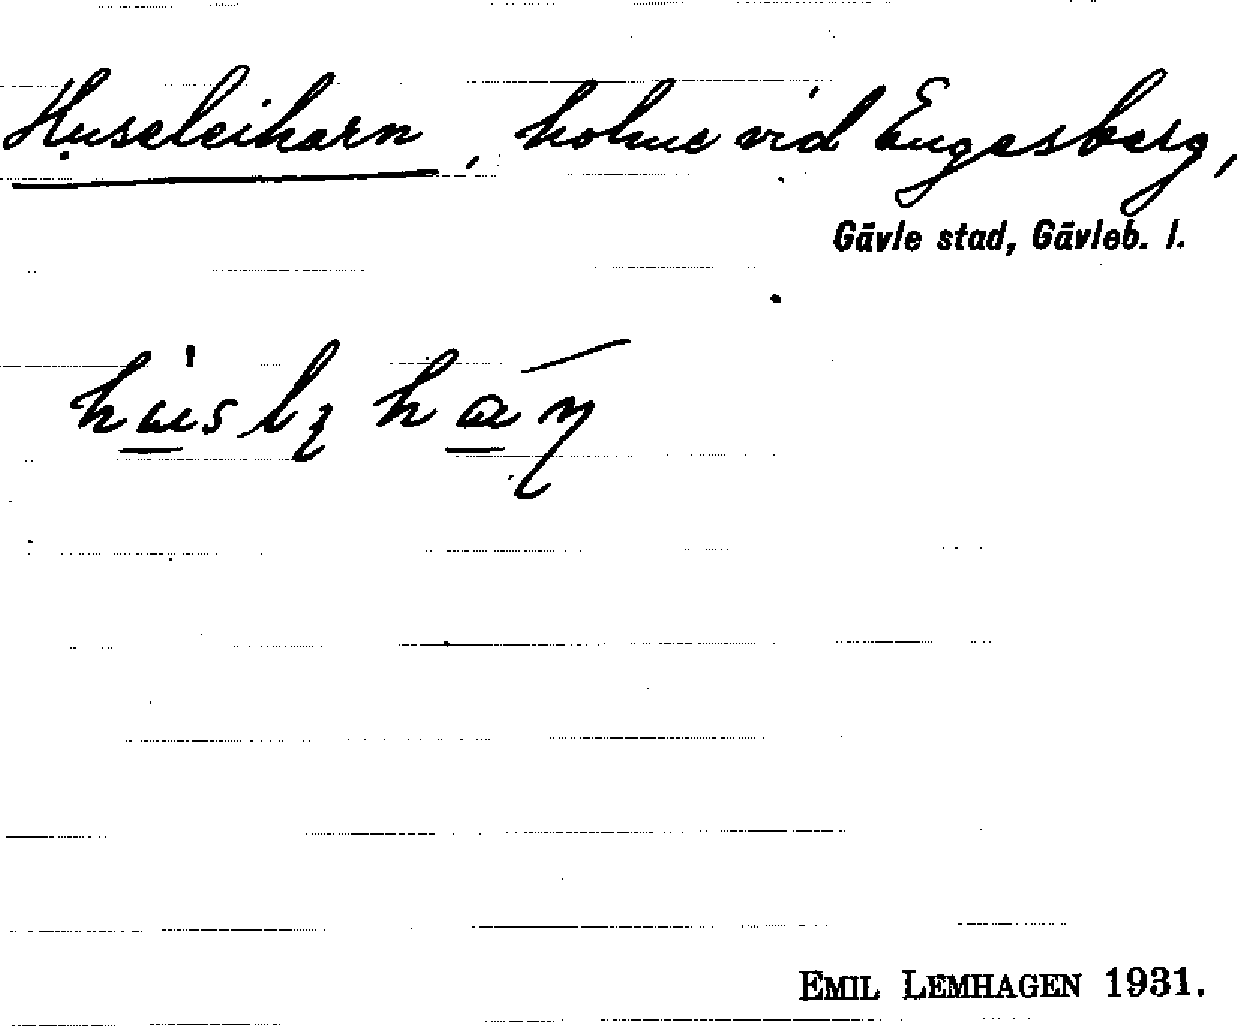 Huseleiharn, holme vid Engesberg,
Gävle stad, Gävleb. l.
EMIL LEMHAGEN 1931.